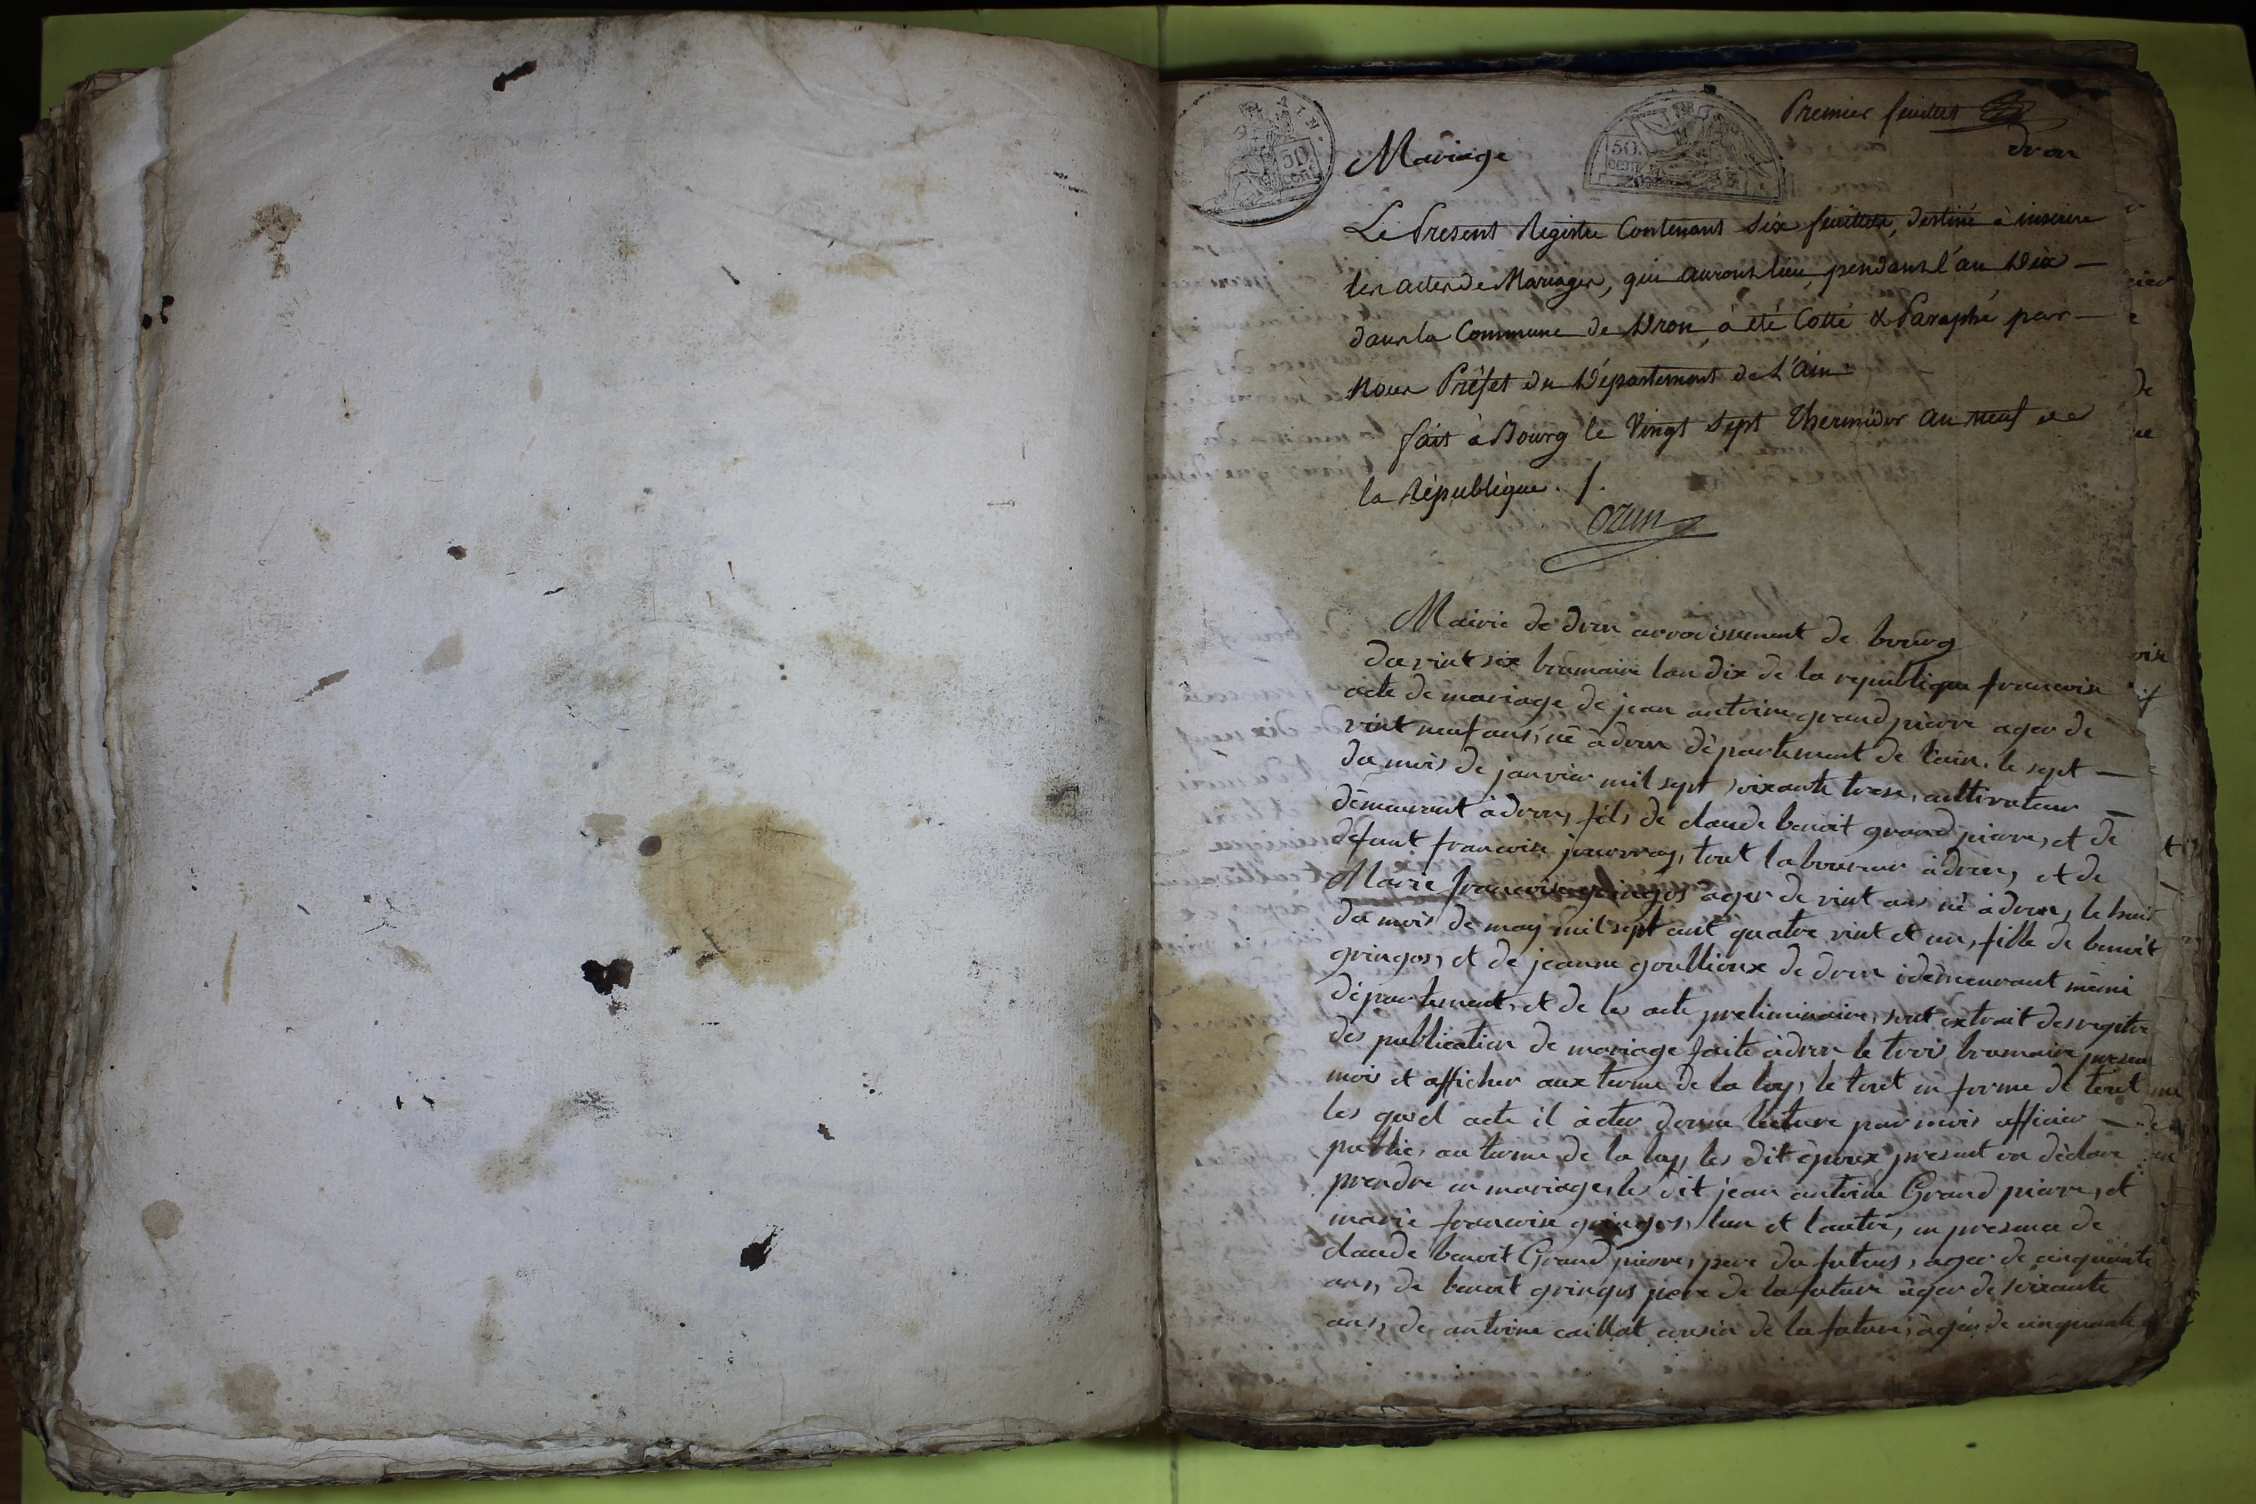 Premier feuillet
dron
Mariage
50.
CENT.
Le Present Registre Contenant Six feuillets, destiné à inscrire
les actes de Mariages, qui auront lieu, pendant l'an Dix
dans la Commune de Dron, a été Cotté & Paraphé par
Nous Préfet du Département de L'Ain
fait à Bourg le Vingt Sept Thermidor an neuf de
la République. /.
Ozun
Mairie de dron arrovissement de bourg
du vint six brumaire lan dix de la republique francoise
acte de mariage de jean antoine grand pierre ager de
vint neuf ans, né à dron département de l'ain, le sept
du mois de janvier mil sept soixante trese, cultivateur
démeurant à dron, fils de claude benoit grand pierre, et de
défunt francoise, tout laboureur à dron, et de
Marie francoise gringos ager de vint ans né à dron, le huit
du mois de may mil sept cent quatre vint et un, fille de benoit
gringos, et de jeanne goullioux de dron démeurant mème
département, et de les acte preliminaire, sont extrait des regitre
dès publication de mariage faite à dron le trois brumaire present
mois et afficher aux terme de la loy, le tout en forme de tout
les quel acte il à eter donne lecture par mois officier
public, au terme de la loy, les dit époux present on déclare
prendre en mariage, le dit jean antoine Grand pierre, et
marie francoise gringos, lun et lautre, en presence de
claude benoit Grand pierre, pere du futurs, ager de cinquante
ans, de benoit gringos pere de la future àger de soixante
ans, de antoine caillat cousin de la future, àgér de cinquante